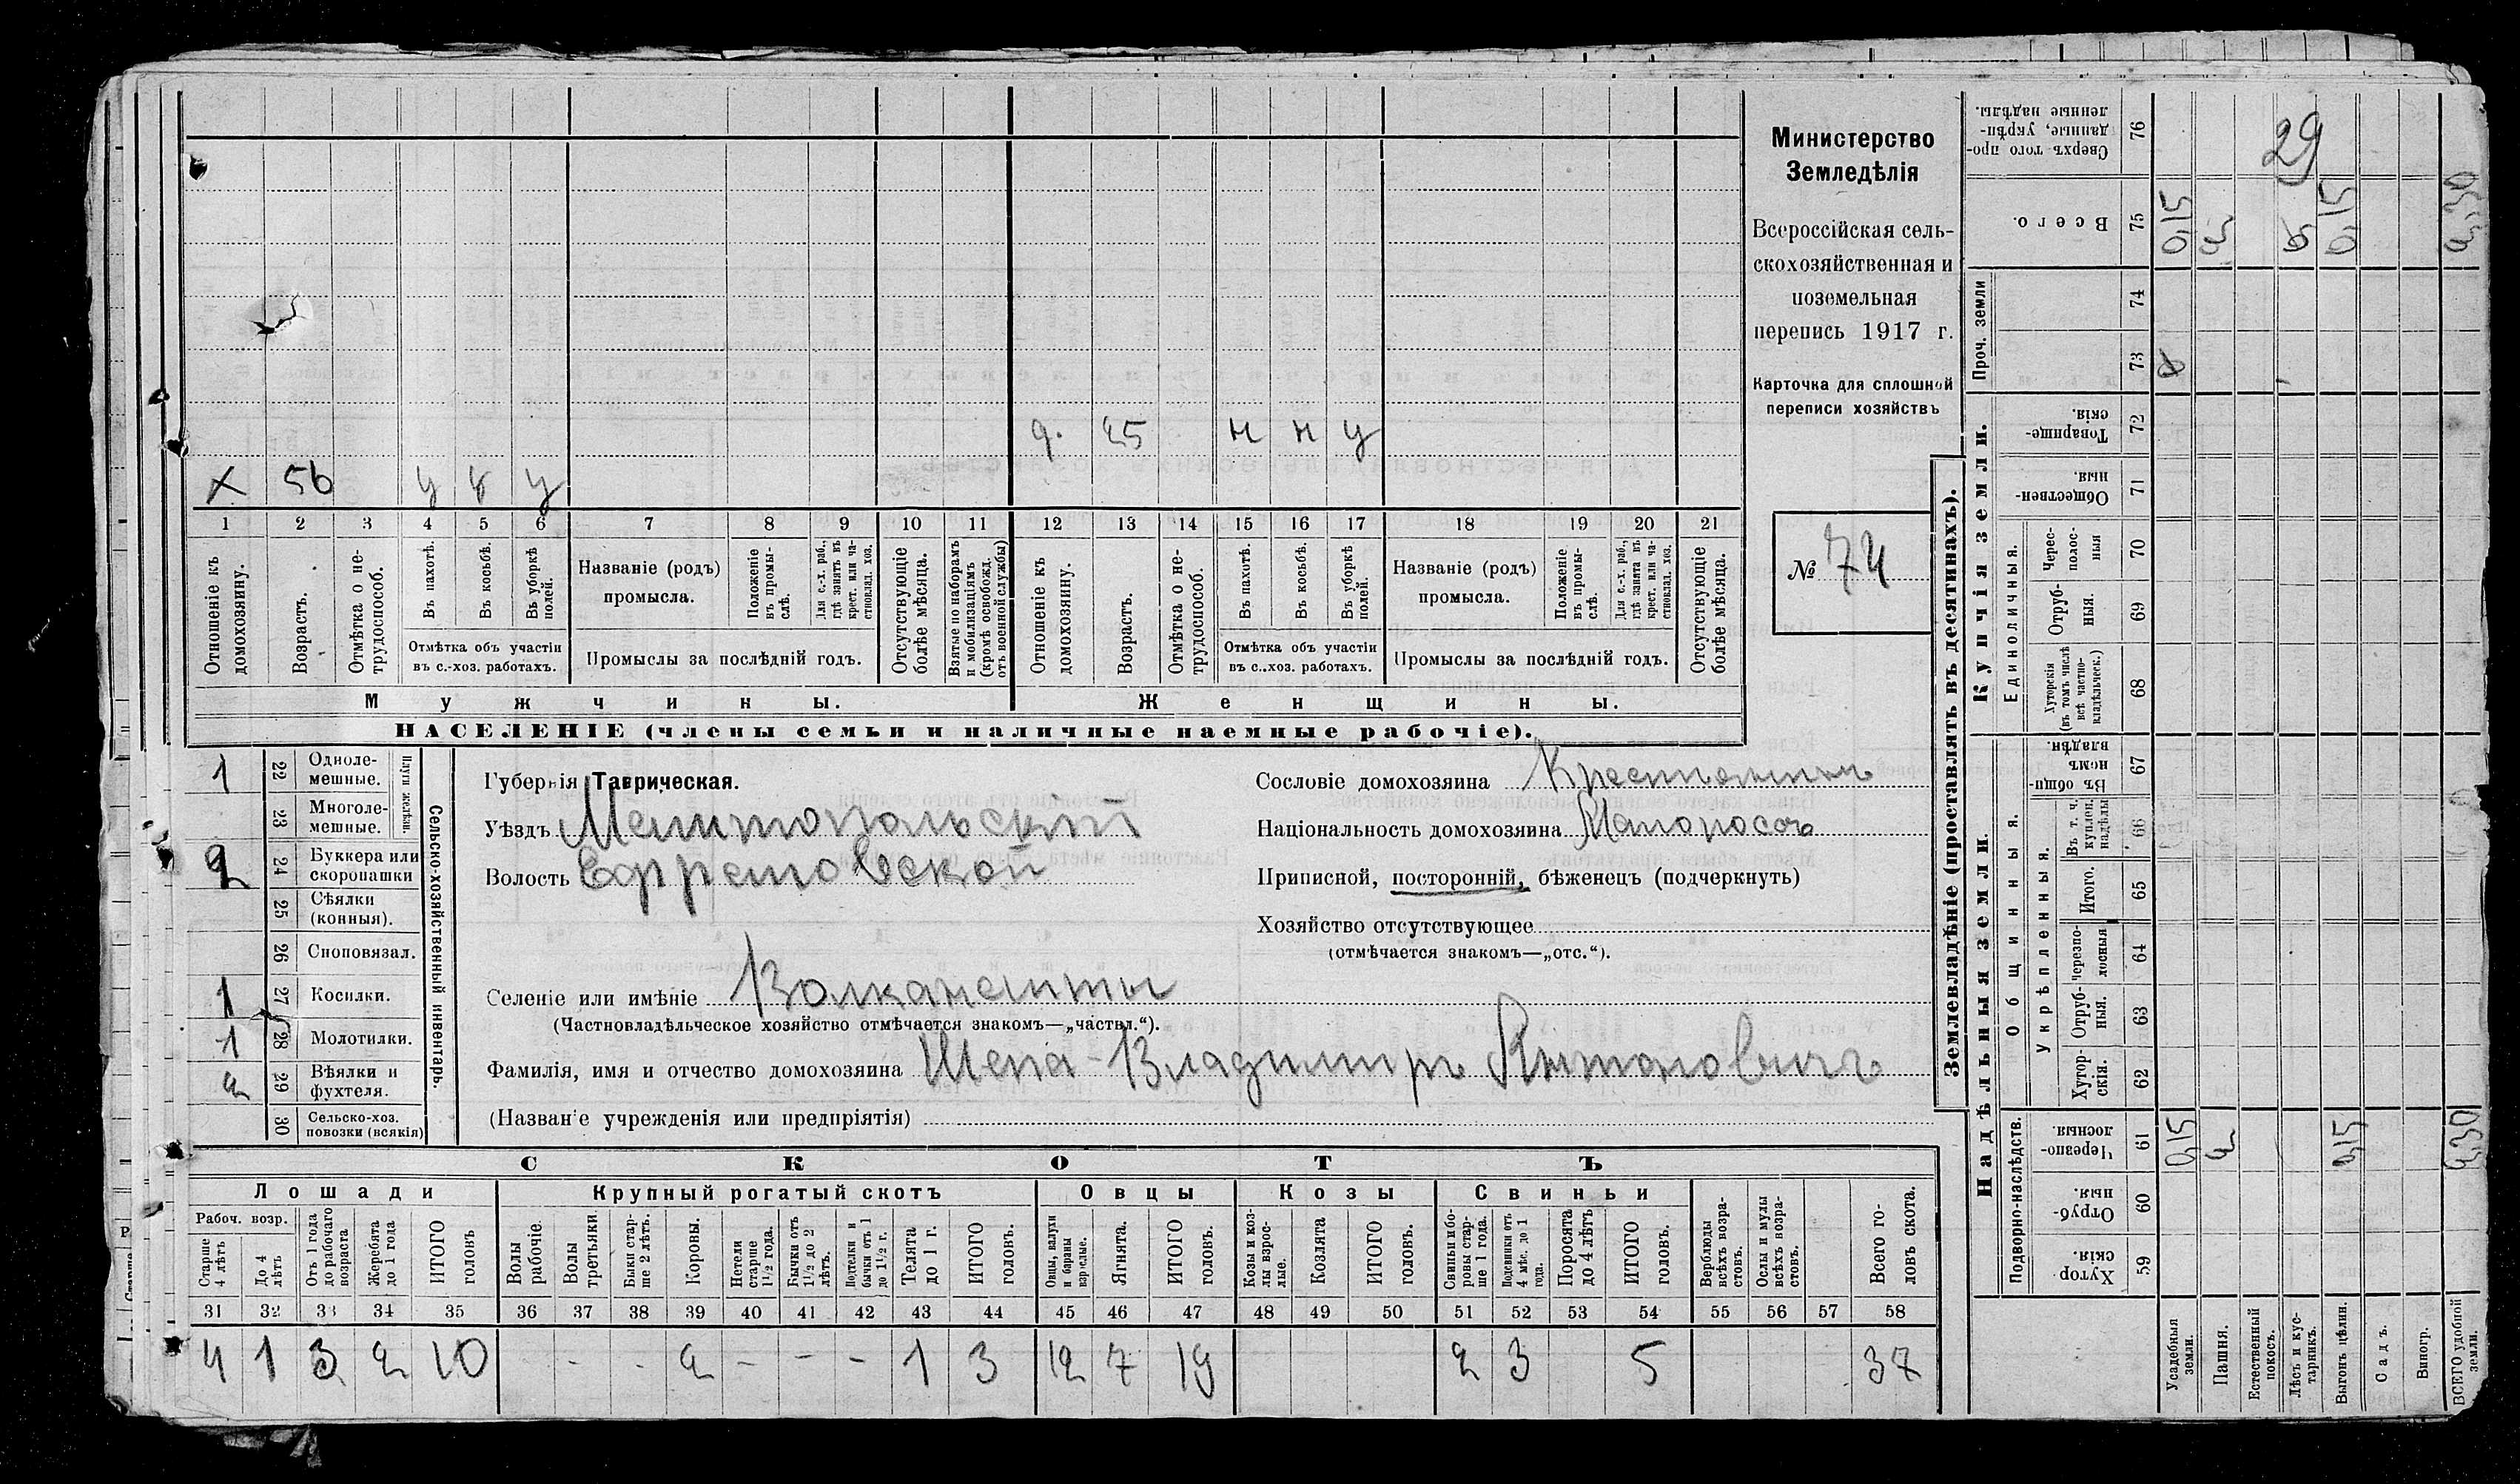 Министерство
Земледѣлія
Всероссійская сель-
скохозяйственная и
поземельная
перепись 1917 г.
Карточка для сплошной
переписи хозяйствъ
№ 74
д. 25 н н у
х 56 у у у
1 2 3 4 5 6 7 8 9 10 11 12 13 14 15 16 17 18 19 20 21
Отношеніе къ домохозяину.
Возрастъ.
Отмѣтка о не-трудоспособ.
Въ пахотѣ.
Въ косьбѣ.
Въ уборкѣ полей.
Отмѣтка объ участіи
въ с.-хоз. работахъ.
Названіе (родъ)
промысла.
Положеніе въ промы-слѣ.
Для с.-х. раб., гдѣ занятъ въ крест. или ча-стновлад. хоз.
Промыслы за послѣдній годъ.
Отсутствующіе болѣе мѣсяца.
Взятые по наборамъ и мобилизаціямъ (кромѣ освобожд. отъ военной службы)
Отношеніе къ домохозяину.
Возрастъ.
Отмѣтка о не-трудоспособ.
Въ пахотѣ.
Въ косьбѣ.
Въ уборкѣ полей.
Отмѣтка объ участіи
въ с.-хоз. работахъ.
Названіе (родъ)
промысла.
Положеніе въ промы-слѣ.
Для с.-х. раб., гдѣ занята въ крест. или ча-стновлад. хоз.
Промыслы за послѣдній годъ.
Отсутствующіе болѣе мѣсяца.
Мужчины.
Женщины.
НАСЕЛЕНІЕ (члены семьи и наличные наемные рабочіе).
Сельско-хозяйственный инвентарь.
Плуги желѣзн.
1 22 Одноле-мешные.
23 Многоле-мешные.
2 24 Буккера или скоропашки
25 Сѣялки (конныя).
26 Сноповязал.
1 27 Косилки.
1 28 Молотилки.
2 29 Вѣялки и фухтеля.
30 Сельско-хоз. повозки (всякія)
Губернія Таврическая.
Уѣздъ Мелитопольскій
Волость Ефремовской
Селеніе или имѣніе Волканешты
(Частновладѣльческое хозяйство отмѣчается знакомъ—„частвл.“).
Фамилія, имя и отчество домохозяина Шепа - Владимиръ Антоновичъ
(Названіе учрежденія или предпріятія)
Сословіе домохозяина Крестьянинъ
Національность домохозяина Малороссъ
Приписной, посторонній, бѣженецъ (подчеркнуть)
Хозяйство отсутствующее
(отмѣчается знакомъ—„отс.“).
СКОТЪ
Лошади
Крупный рогатый скотъ
Овцы
Козы
Свиньи
Рабоч. возр.
Старше 4 лѣтъ
До 4 лѣтъ
Отъ 1 года до рабочаго возраста
Жеребята до 1 года
ИТОГО головъ.
Волы рабочіе.
Волы третьяки.
Быки стар-ше 2 лѣтъ.
Коровы.
Нетели старше 1½ года.
Бычки отъ 1½ до 2 лѣтъ.
Подтелки и бычки отъ 1 до 1½ г.
Телята до 1 г.
ИТОГО головъ.
Овцы, валухи и бараны взрослые.
Ягнята.
ИТОГО головъ.
Козы и коз-лы взрос-лые.
Козлята
ИТОГО головъ.
Свиньи и бо-ровы стар-ше 1 года.
Подсвинки отъ 4 мѣс. до 1 года.
Поросята до 4 лѣтъ
ИТОГО головъ.
Верблюды всѣхъ возра-стовъ.
Ослы и мулы всѣхъ возра-стовъ.
Всего го-ловъ скота.
31 32 33 34 35 36 37 38 39 40 41 42 43 44 45 46 47 48 49 50 51 52 53 54 55 56 57 58
4 1 3 2 10 - - - 2 - - - 1 3 12 7 19 2 3 5 37
Землевладѣніе (проставлять въ десятинахъ).
Надѣльныя земли.
Купчія земли.
Проч. земли
Подворно-наслѣдств.
Общинныя.
Укрѣпленныя.
Единоличныя.
Сверхъ того про-данные, укрѣп-ленные надѣлы. 76
Всего. 75
74
73
Товарище-скія. 72
Обществен-ныя. 71
Черес-полос-ныя 70
Отруб-ныя. 69
Хуторскія (въ томъ числѣ всѣ частно-владѣльческ.) 68
Въ общин-номъ владѣн. 67
Въ т. ч. куплен. надѣлы 66
Итого. 65
Черезпо-лосныя 64
Отруб-ныя. 63
Хутор-скія. 62
Черезпо-лосныя. 61
Отруб-ныя. 60
Хутор-скія. 59
29
0,15 4 0,15 4,30
0,15 4 0,15 4,30
Усадебныя земли.
Пашня.
Естественный покосъ.
Лѣсъ и кус-тарникъ.
Выгонъ цѣлин.
Садъ.
Виногр.
ВСЕГО удобной земли.